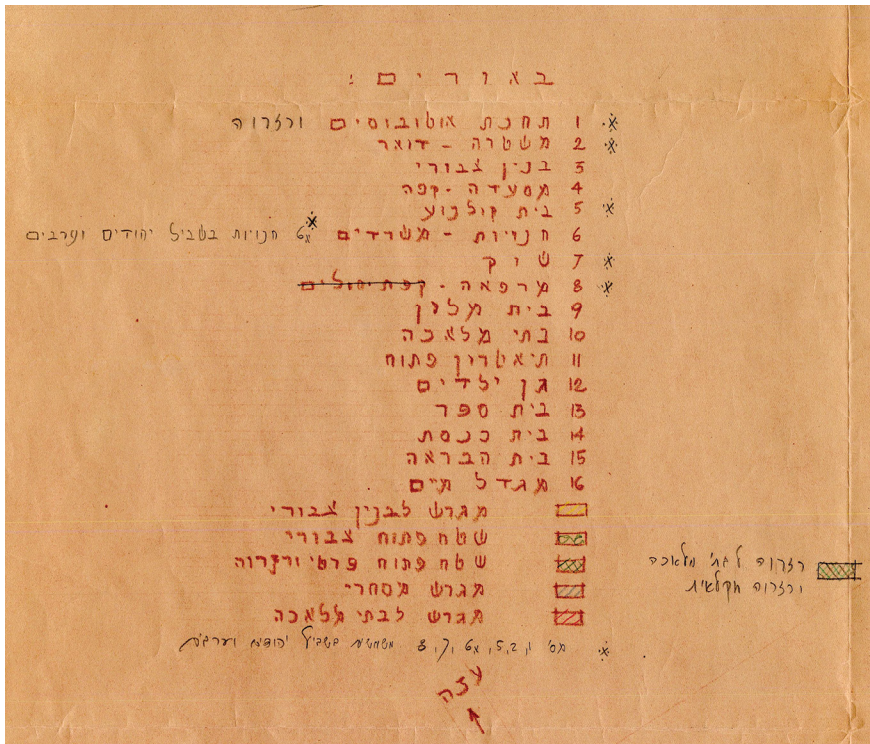 באורים:
1 תחנת אוטובוסים ורזרוה
2 משטרה - דואר
3 בנין צבורי
4 מסעדה - קפה
5 בית קולנוע
6 חנויות - משרדים 6א חנויות בשביל יהודים וערבים
7 שוק
8 מרפאה - קפת חולים
9 בית מלון
10 בתי מלאכה
11 תיאטרון פתוח
12 גן ילדים
13 בית ספר
14 בית כנסת
15 בית הבראה
16 מגדל מים
מגרש לבנין צבורי
שטח פתוח צבורי
שטח פתוח פרטי ורזרוה
רזרוה לבתי מלאכה
ורזרוה חקלאית
מגרש מסחרי
מגרש לבתי מלאכה
מס' 1, 2, 5, 6א, 7, 8 משותפות בשביל יהודים וערבים
עזה